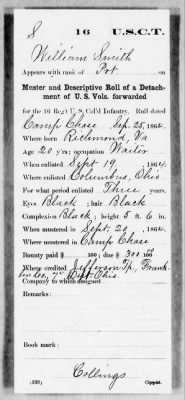 S 16 U.S.C.T.
William Smith
Appears with rank of Pvt on
Muster and Descriptive Roll of a Detach-
ment of U. S. Vols. forwarded
for the 16 Reg't U. S. Col'd Infantry. Roll dated
Camp Chase Sep. 25, 1864.
Where born Richmond, Va
Age 20 y'rs; occupation Waiter
When enlisted Sept 19, 1864.
Where enlisted Columbus, Ohio
For what period enlisted Three years.
Eyes Black; hair Black
Complexion Black; height 5 ft. 6 in.
When mustered in Sept. 20, 1864.
Where mustered in Camp Chase
Bounty paid $ 100; due $ 300 100
Where credited Jefferson Tp., Frank-
lin Co., 7" Dist. Ohio.
Company to which assigned
Remarks:
Book mark:
Collings
(339) Copyist.